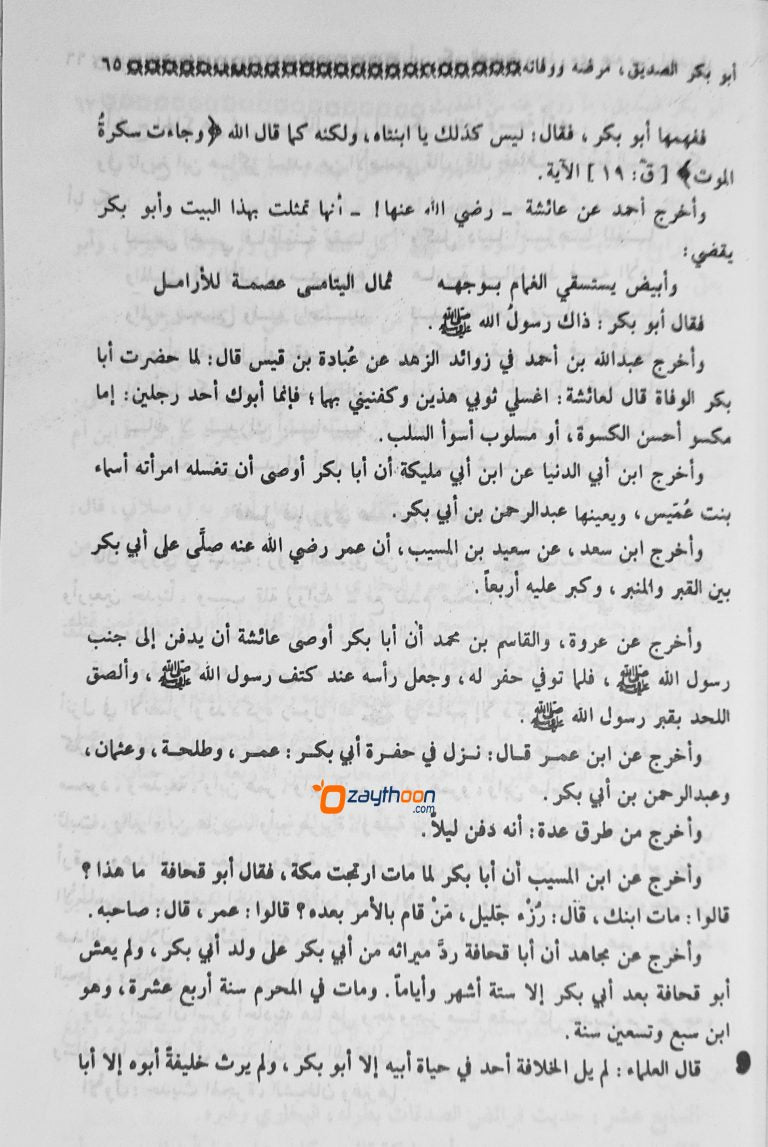 أبو بكر الصديق، مرضه ووفاته ٦٥
ففهمها أبو بكر، فقال: ليس كذلك يا ابنتاه، ولكنه كما قال الله ﴿وجاءت سكرةُ
الموت﴾ [ق: ١٩] الآية.
وأخرج أحمد عن عائشة - رضي الله عنها! - أنها تمثلت بهذا البيت وأبو بكر
يقضي:
وأبيض يستسقي الغمام بوجهه ثمال اليتامى عصمة للأرامل
فقال أبو بكر: ذاك رسولُ الله ﷺ.
وأخرج عبدالله بن أحمد في زوائد الزهد عن عُبادة بن قيس قال: لما حضرت أبا
بكر الوفاة قال لعائشة: اغسلي ثوبي هذين وكفنيني بهما؛ فإنما أبوك أحد رجلين: إما
مكسو أحسن الكسوة، أو مسلوب أسوأ السلب.
وأخرج ابن أبي الدنيا عن ابن أبي مليكة أن أبا بكر أوصى أن تغسله امرأته أسماء
بنت عُمَيس، ويعينها عبدالرحمن بن أبي بكر.
وأخرج ابن سعد، عن سعيد بن المسيب، أن عمر رضي الله عنه صلَّى على أبي بكر
بين القبر والمنبر، وكبر عليه أربعاً.
وأخرج عن عروة، والقاسم بن محمد أن أبا بكر أوصى عائشة أن يدفن إلى جنب
رسول الله ﷺ، فلما توفي حفر له، وجعل رأسه عند كتف رسول الله ﷺ، وألصق
اللحد بقبر رسول الله ﷺ.
وأخرج عن ابن عمر قال: نزل في حفرة أبي بكر: عمر، وطلحة، وعثمان،
وعبدالرحمن بن أبي بكر.
zaythoon.com
وأخرج من طرق عدة: أنه دفن ليلاً.
وأخرج عن ابن المسيب أن أبا بكر لما مات ارتجت مكة، فقال أبو قحافة ما هذا؟
قالوا: مات ابنك، قال: رُزْء جَليل، مَنْ قام بالأمر بعده؟ قالوا: عمر، قال: صاحبه.
وأخرج عن مجاهد أن أبا قحافة ردَّ ميراثه من أبي بكر على ولد أبي بكر، ولم يعش
أبو قحافة بعد أبي بكر إلا ستة أشهر وأياماً. ومات في المحرم سنة أربع عشرة، وهو
ابن سبع وتسعين سنة.
قال العلماء: لم يل الخلافة أحد في حياة أبيه إلا أبو بكر، ولم يرث خليفةً أبوه إلا أبا